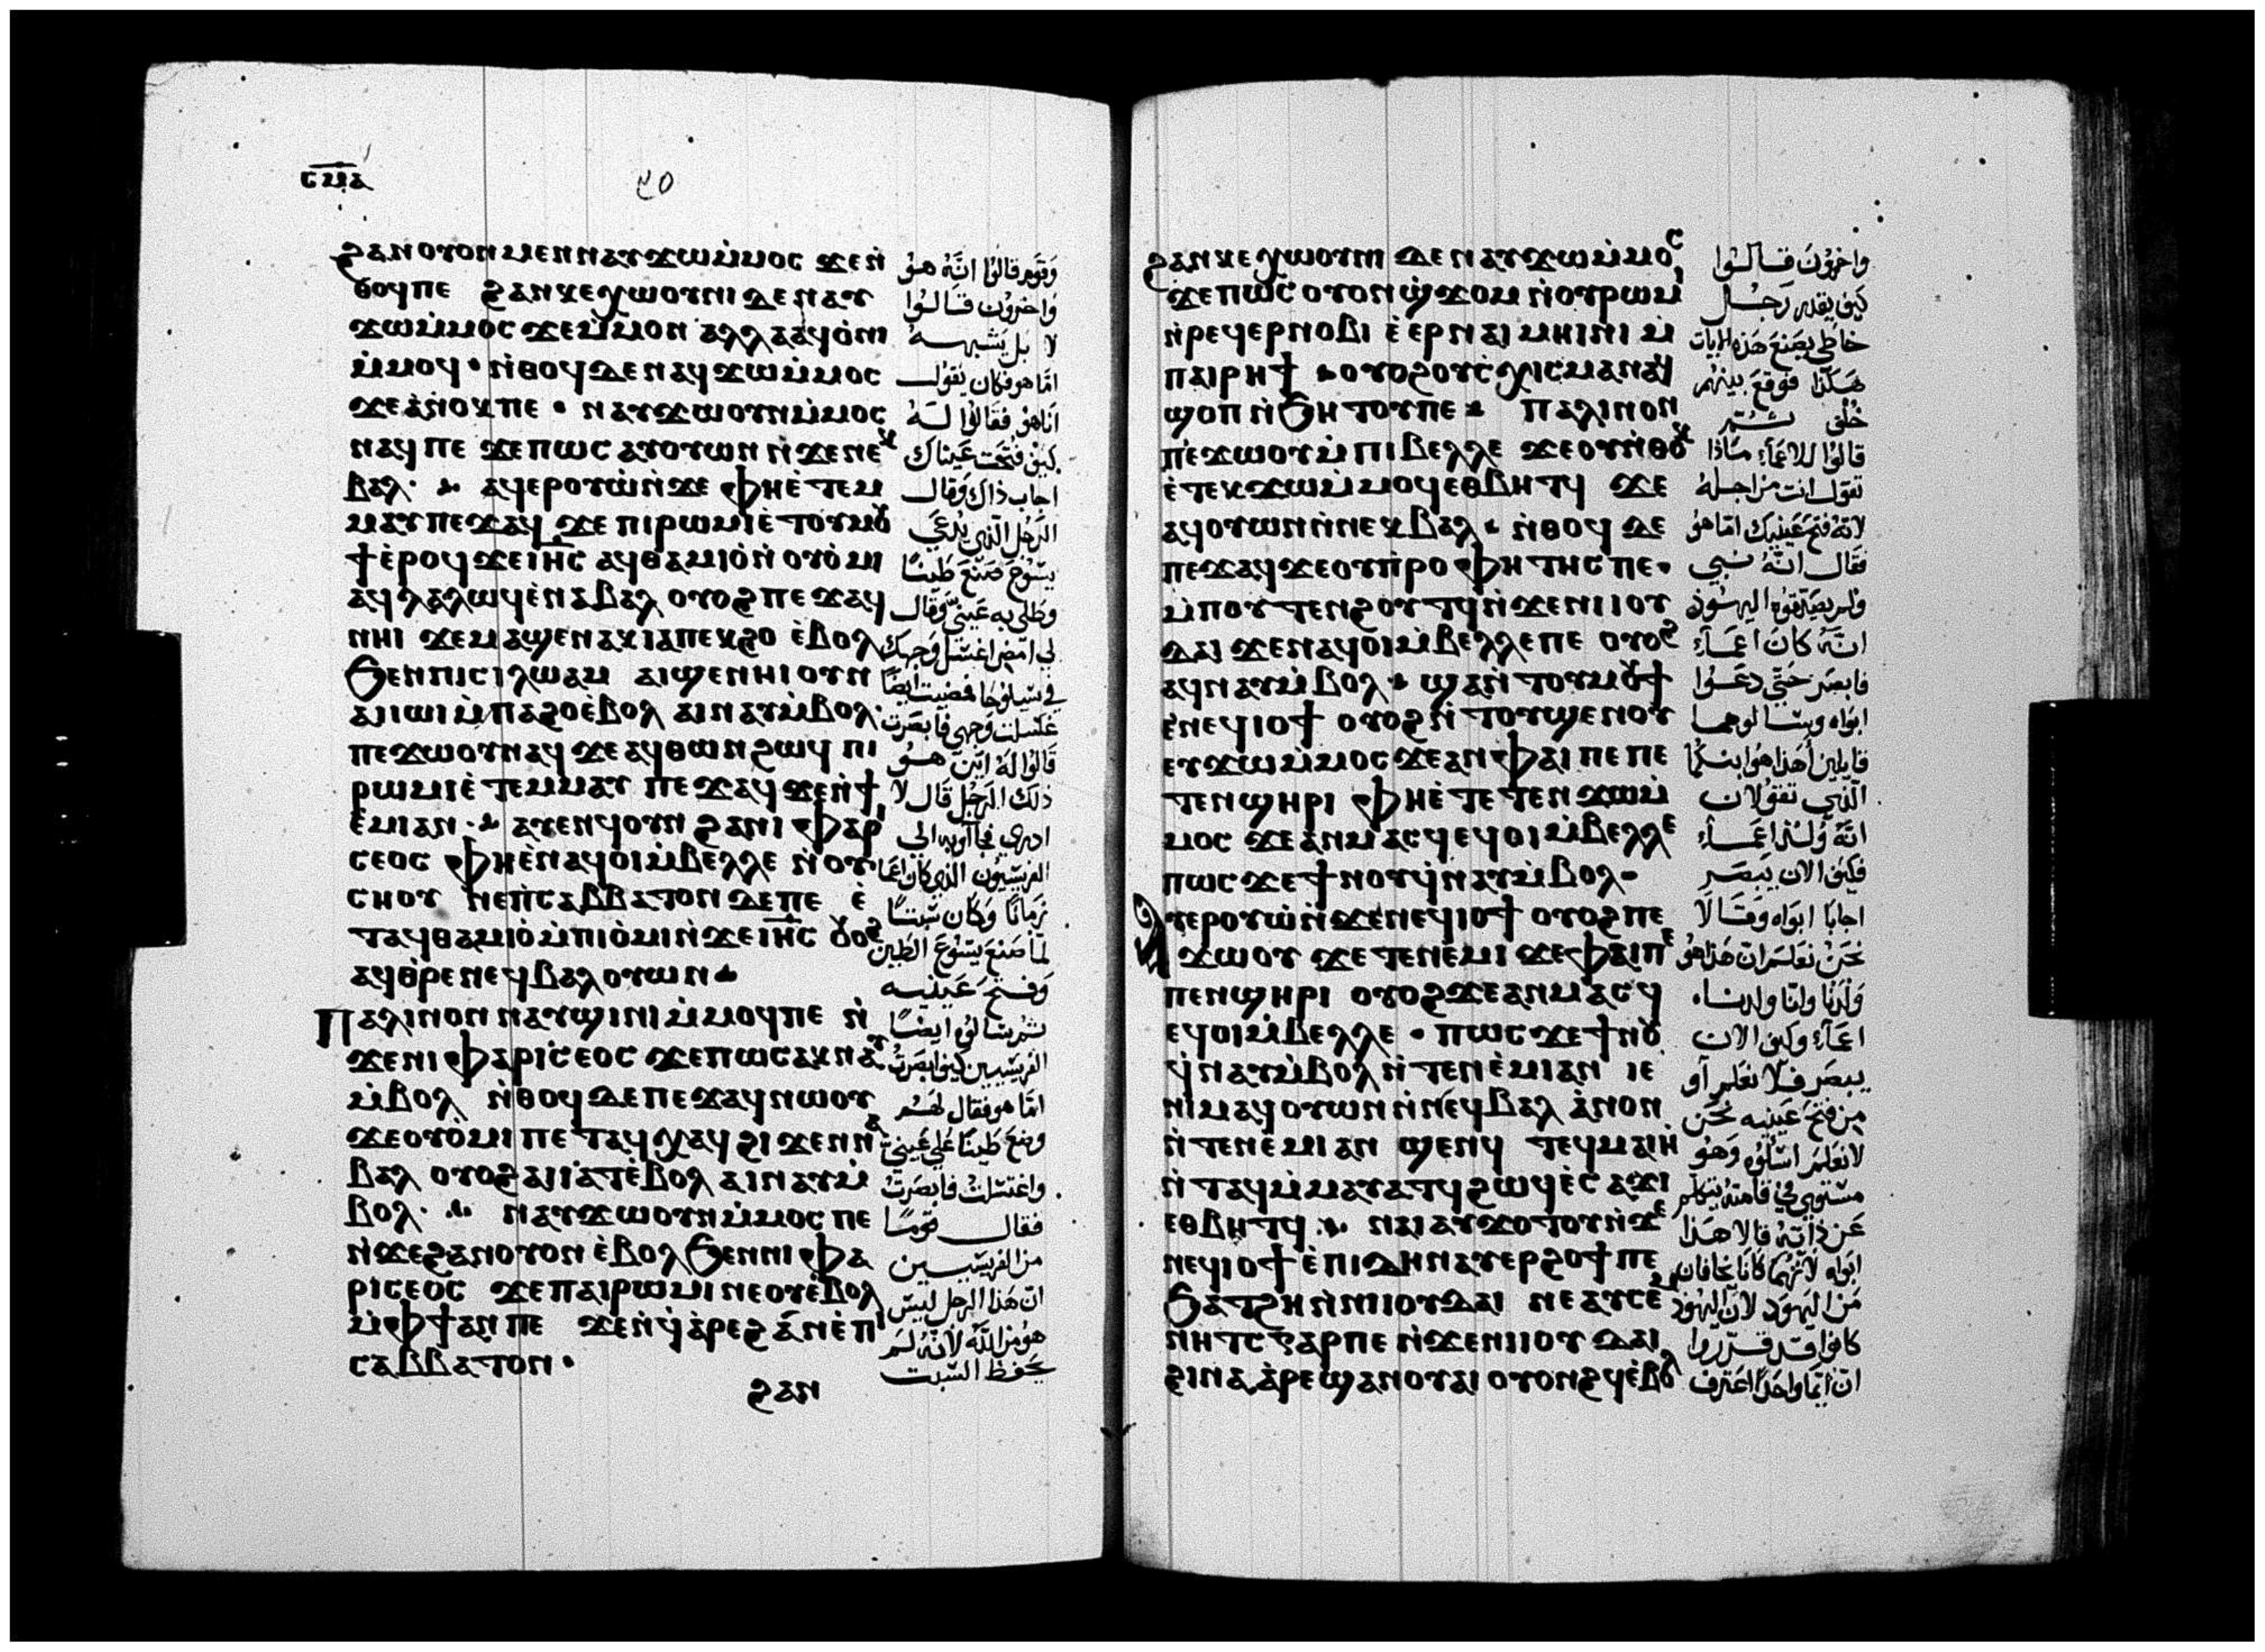 ⲥⲙⲁ
ϩⲁⲛⲟⲩⲟⲛ ⲙⲉⲛ ⲛⲁⲩϫⲱ ⲙ̀ⲙⲟⲥ ϫⲉ ⲛ̀
ⲑⲟϥ ⲡⲉ ϩⲁⲛⲕⲉⲭⲱⲟⲩⲛⲓ ⲇⲉ ⲛⲁⲩ
ϫⲱ ⲙ̀ⲙⲟⲥ ϫⲉ ⲙ̀ⲙⲟⲛ ⲁⲗⲗⲁ ⲁϥⲟ̀ⲛⲓ
ⲙ̀ⲙⲟϥ · ⲛ̀ⲑⲟϥ ⲇⲉ ⲛⲁϥϫⲱ ⲙ̀ⲙⲟⲥ
ϫⲉ ⲁ̀ⲛⲟⲕ ⲡⲉ · ⲛⲁⲩϫⲱ ⲟⲩⲛ ⲙ̀ⲙⲟⲥ
ⲛⲁϥ ⲡⲉ ϫⲉ ⲡⲱⲥ ⲁⲩⲟⲩⲱⲛ ⲛ̀ϫⲉ ⲛⲉⲕ
ⲃⲁⲗ · ⲁϥⲉⲣⲟⲩⲱ̀ ⲛ̀ϫⲉ ⲫⲏ ⲉ̀ⲧⲉⲙ
ⲙⲁⲩ ⲡⲉϫⲁϥ ϫⲉ ⲡⲓⲣⲱⲙⲓ ⲉ̀ⲧⲟⲩⲙⲟⲩ
ϯ ⲉ̀ⲣⲟϥ ϫⲉ ⲓⲏ̅ⲥ̅ ⲁϥⲑⲁⲙⲓⲟ̀ ⲛ̀ⲟⲩⲟ̀ⲙⲓ
ⲁϥⲗⲁⲗⲱϥ ⲉ̀ⲛⲁⲃⲁⲗ ⲟⲩⲟϩ ⲡⲉϫⲁϥ
ⲛⲏⲓ ϫⲉ ⲙⲁϣⲉⲛⲁⲕ ⲓⲁ ⲡⲉⲕϩⲟ ⲉ̀ⲃⲟⲗ
ϧⲉⲛ ⲡⲓⲥⲓⲗⲱⲁⲙ ⲁⲓϣⲉⲛⲏⲓ ⲟⲩⲛ
ⲁⲓⲓⲱⲓ ⲙ̀ⲡⲁϩⲟ ⲉ̀ⲃⲟⲗ ⲁⲓⲛⲁⲩ ⲙ̀ⲃⲟⲗ ·
ⲡⲉϫⲱⲟⲩ ⲛⲁϥ ϫⲉ ⲁϥⲑⲱⲛ ϩⲱϥ ⲡⲓ
ⲣⲱⲙⲓ ⲉ̀ⲧⲉⲙⲙⲁⲩ ⲡⲉϫⲁϥ ϫⲉ ⲛ̀ϯ
ⲉ̀ⲙⲓ ⲁⲛ · ⲁⲩⲉⲛϥ ⲟⲩⲛ ϩⲁ ⲛⲓⲫⲁⲣⲓ
ⲥⲉⲟⲥ ⲫⲏ ⲉ̀ⲛⲁϥⲟⲓ ⲙ̀ⲃⲉⲗⲗⲉ ⲛ̀ⲟⲩ
ⲥⲏⲟⲩ ⲛⲉ ⲡ̀ⲥⲁⲃⲃⲁⲧⲟⲛ ⲇⲉ ⲡⲉ ⲉ̀
ⲧⲁϥⲑⲁⲙⲓⲟ̀ ⲙ̀ⲡⲓⲟ̀ⲙⲓ ⲛ̀ϫⲉ ⲓⲏ̅ⲥ̅ ⲟⲩⲟϩ
ⲁϥⲑ̀ⲣⲉ ⲛⲉϥⲃⲁⲗ ⲟⲩⲱⲛ
ⲡⲁⲗⲓⲛ ⲟⲛ ⲛⲁⲩϣⲓⲛⲓ ⲙ̀ⲙⲟϥ ⲡⲉ ⲛ̀
ϫⲉ ⲛⲓⲫⲁⲣⲓⲥⲉⲟⲥ ϫⲉ ⲡⲱⲥ ⲁⲕⲛⲁⲩ
ⲙ̀ⲃⲟⲗ ⲛ̀ⲑⲟϥ ⲇⲉ ⲡⲉϫⲁϥ ⲛⲱⲟⲩ
ϫⲉ ⲟⲩⲟ̀ⲙⲓ ⲡⲉⲧⲁϥⲭⲁϥ ϩⲓϫⲉⲛ ⲛⲁ
ⲃⲁⲗ ⲟⲩⲟϩ ⲁⲓⲓⲁⲧ ⲉ̀ⲃⲟⲗ ⲁⲓⲛⲁⲩ ⲙ̀
ⲃⲟⲗ · ⲛⲁⲩϫⲱ ⲟⲩⲛ ⲙ̀ⲙⲟⲥ ⲡⲉ
ⲛ̀ϫⲉ ϩⲁⲛⲟⲩⲟⲛ ⲉ̀ⲃⲟⲗ ϧⲉⲛ ⲛⲓⲫⲁ
ⲣⲓⲥⲉⲟⲥ ϫⲉ ⲡⲁⲓⲣⲱⲙⲓ ⲛⲉ ⲟⲩⲉ̀ⲃⲟⲗ
ⲙ̀ⲫϯ ⲁⲛ ⲡⲉ ϫⲉ ⲛ̀ϥⲁ̀ⲣⲉϩ ⲁⲛ ⲉ̀ⲡⲓ
ⲥⲁⲃⲃⲁⲧⲟⲛ ·
ϩⲁⲛ
وقوم قالوا انه هو
واخرون قالوا
لا بل يشبهه
اما هو فكان يقول
انا هو فقالوا له
كيف فتحت عيناك
اجاب ذاك وقال
الرجل الذي يدعي
يسوع صنع طينا
وطلي به عيني وقال
لي امض اغسل وجهك
في سيلوحا فمضيت ايضا
غسلت وجهي فابصرت
قالوا له اين هو
ذلك الرجل قال لا
ادري فجاوا به الي
الفريسيون الذي كان اعما
زمانا وكان سبتا
لما صنع يسوع الطين
وفتح عينيه
ثم سالوه ايضا
الفريسيين كيف ابصرت
اما هو فقال لهم
وضع طينا علي عيني
واغتسلت فابصرت
فقال قوما
من الفريسيين
ان هذا الرجل ليس
هو من الله لانه لم
يحفظ السبت
ϩⲁⲛⲕⲉⲭⲱⲟⲩⲛⲓ ⲇⲉ ⲛⲁⲩϫⲱ ⲙ̀ⲙⲟⲥ
ϫⲉ ⲡⲱⲥ ⲟⲩⲟⲛ ϣ̀ϫⲟⲙ ⲛ̀ⲟⲩⲣⲱⲙⲓ
ⲛ̀ⲣⲉϥⲉⲣⲛⲟⲃⲓ ⲉ̀ ⲉⲣ ⲛⲁⲓⲙⲏⲓⲛⲓ ⲙ̀
ⲡⲁⲓⲣⲏϯ ⲟⲩⲟϩ ⲟⲩⲥ̀ⲭⲓⲥⲙⲁ ⲛⲁϥ
ϣⲟⲡ ⲛ̀ϧⲏⲧⲟⲩ ⲡⲉ ⲡⲁⲗⲓⲛ ⲟⲛ
ⲡⲉϫⲱⲟⲩ ⲙ̀ⲡⲓⲃⲉⲗⲗⲉ ϫⲉ ⲟⲩ ⲛ̀ⲑⲟⲕ
ⲉ̀ⲧⲉⲕϫⲱ ⲙ̀ⲙⲟϥ ⲉⲑⲃⲏⲧϥ ϫⲉ
ⲁϥⲟⲩⲱⲛ ⲛ̀ⲛⲉⲕⲃⲁⲗ · ⲛ̀ⲑⲟϥ ⲇⲉ
ⲡⲉϫⲁϥ ϫⲉ ⲟⲩⲡ̀ⲣⲟⲫⲏⲧⲏⲥ ⲡⲉ ·
ⲙ̀ⲡⲟⲩⲧⲉⲛϩⲟⲩⲧϥ ⲛ̀ϫⲉ ⲛⲓⲓⲟⲩ
ⲇⲁⲓ ϫⲉ ⲛⲁϥⲟⲓ ⲙ̀ⲃⲉⲗⲗⲉ ⲡⲉ ⲟⲩⲟϩ
ⲁϥⲛⲁⲩ ⲙ̀ⲃⲟⲗ · ϣⲁⲛ̀ⲧⲟⲩⲙⲟⲩϯ
ⲉ̀ⲛⲉϥⲓⲟϯ ⲟⲩⲟϩ ⲛ̀ⲧⲟⲩϣⲉⲛⲟⲩ
ⲉⲩϫⲱ ⲙ̀ⲙⲟⲥ ϫⲉ ⲁⲛ ⲫⲁⲓ ⲡⲉ ⲡⲉ
ⲧⲉⲛϣⲏⲣⲓ ⲫⲏ ⲉ̀ⲧⲉⲧⲉⲛϫⲱ ⲙ̀
ⲙⲟⲥ ϫⲉ ⲁⲛⲙⲁⲥϥ ⲉϥⲟⲓ ⲙ̀ⲃⲉⲗⲗⲉ
ⲡⲱⲥ ϫⲉ ϯⲛⲟⲩ ϥ̀ⲛⲁⲩ ⲙ̀ⲃⲟⲗ ·
ⲁⲩⲉⲣⲟⲩⲱ̀ ⲛ̀ϫⲉ ⲛⲉϥⲓⲟϯ ⲟⲩⲟϩ ⲡⲉ
ϫⲱⲟⲩ ϫⲉ ⲧⲉⲛⲉ̀ⲙⲓ ϫⲉ ⲫⲁⲓ ⲡⲉ
ⲡⲉⲛϣⲏⲣⲓ ⲟⲩⲟϩ ϫⲉ ⲁⲛⲙⲁⲥϥ
ⲉϥⲟⲓ ⲙ̀ⲃⲉⲗⲗⲉ · ⲡⲱⲥ ϫⲉ ϯⲛⲟⲩ
ϥ̀ⲛⲁⲩ ⲙ̀ⲃⲟⲗ ⲛ̀ⲧⲉⲛⲉ̀ⲙⲓ ⲁⲛ ⲓⲉ
ⲛⲓⲙ ⲁϥⲟⲩⲱⲛ ⲛ̀ⲛⲉϥⲃⲁⲗ ⲁ̀ⲛⲟⲛ
ⲛ̀ⲧⲉⲛⲉ̀ⲙⲓ ⲁⲛ ϣⲉⲛϥ ⲧⲉϥⲙⲁⲓⲏ̀
ⲛ̀ⲧⲁϥ ⲙ̀ⲙⲁⲩⲁⲧϥ ϩⲱϥ ⲉ̀ⲥⲁϫⲓ
ⲉⲑⲃⲏⲧϥ · ⲛⲁⲓ ⲁⲩϫⲟⲧⲟⲩ ⲛ̀ϫⲉ
ⲛⲉϥⲓⲟϯ ⲉ̀ⲡⲓⲇⲏ ⲛⲁⲩⲉⲣϩⲟϯ ⲡⲉ
ϧⲁⲧϩⲏ ⲛ̀ⲛⲓⲓⲟⲩⲇⲁⲓ ⲛⲉ ⲁⲩⲥⲉⲙ
ⲛⲏⲧⲥ ⲅⲁⲣ ⲡⲉ ⲛ̀ϫⲉ ⲛⲓⲓⲟⲩⲇⲁⲓ
ϩⲓⲛⲁ ⲁ̀ⲣⲉϣⲁⲛ ⲟⲩⲁⲓ ⲟⲩⲟⲛϩϥ ⲉ̀ⲃⲟⲗ
واخرون قالوا
كيف يقدر رجل
خاطي يصنع هذه الايات
هكذا فوقع بينهم
خلف ثم
قالوا للاعمآء ماذا
تقول انت من اجله
لانه فتح عينيك اما هو
فقال انه نبي
ولم يصدقوه اليهود
انه كان اعمآء
فابصر حتي دعوا
ابواه وسالوهما
قايلين اهذا هو ابنكما
الذي تقولان
انه ولد اعمآء
فكيف الان يبصر
اجابا ابواه وقالا
نحن نعلم ان هذا هو
ولدنا واننا ولدناه
اعمآء وكيف الان
يبصر فلا نعلم او
من فتح عينيه نحن
لا نعلم اسئلوه وهو
مستوي في قامته يتكلم
عن ذاته قالا هذا
ابواه لانهما كانا يخافان
من اليهود لان اليهود
كانوا قد قرروا
ان ايما واحدا اعترف